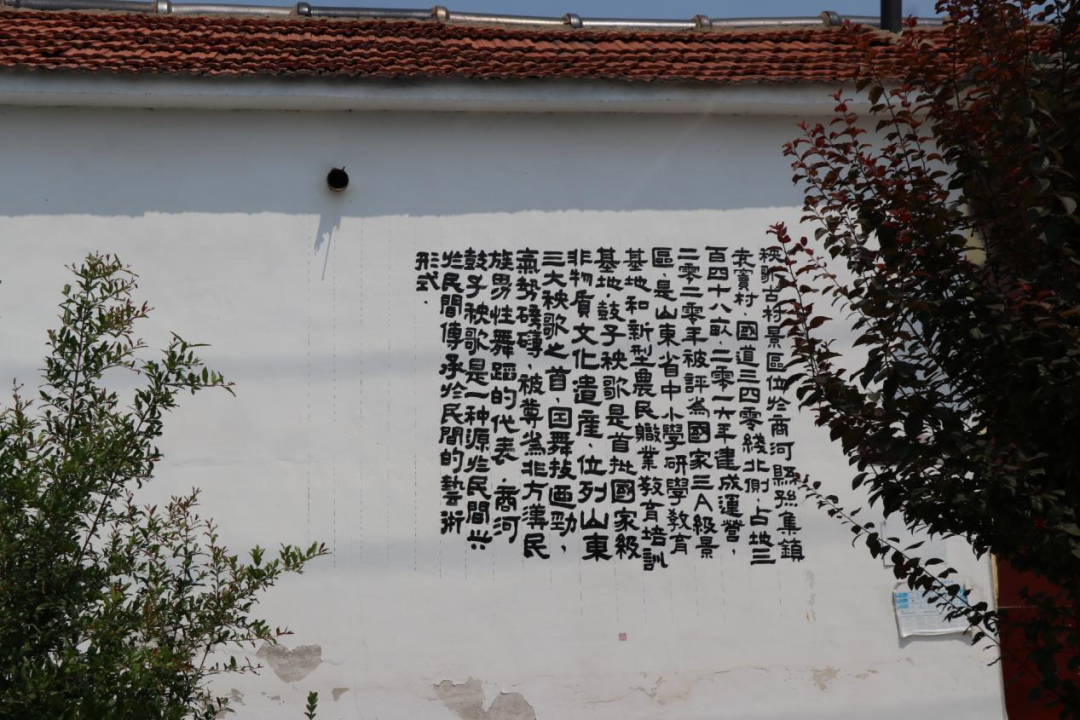 秧歌古村景區位於商河縣孫集鎮
袁窪村，國道三四零綫北側，占地三
百四十八畝，二零一六年建成運營，
二零二零年被評為國家三A級景
區，是山東省中小學研學教育
基地和新型農民職業教育培訓
基地，鼓子秧歌是首批國家級
非物質文化遺産，位列山東
三大秧歌之首，因舞技遒勁，
氣勢磅礴，被尊為北方漢民
族男性舞蹈的代表，商河
鼓子秧歌是一种源於民間興
於民間傳承於民間的藝術
形式．